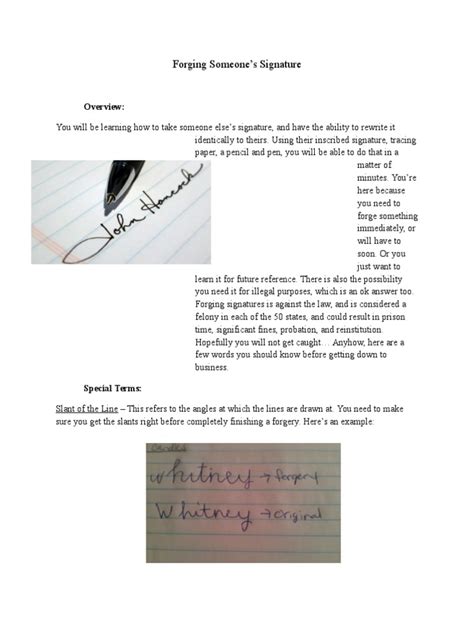 Forging Someone's Signature
Overview:
You will be learning how to take someone else's signature, and have the ability to rewrite it
identically to theirs. Using their inscribed signature, tracing
paper, a pencil and pen, you will be able to do that in a
matter of
minutes. You're
here because
you need to
forge something
immediately, or
will have to
soon. Or you
just want to
John Hancock
learn it for future reference. There is also the possibility
you need it for illegal purposes, which is an ok answer too.
Forging signatures is against the law, and is considered a
felony in each of the 50 states, and could result in prison
time, significant fines, probation, and reinstitution.
Hopefully you will not get caught… Anyhow, here are a
few words you should know before getting down to
business.
Special Terms:
Slant of the Line – This refers to the angles at which the lines are drawn at. You need to make
sure you get the slants right before completely finishing a forgery. Here's an example:
whitney → forgery
Whitney → original